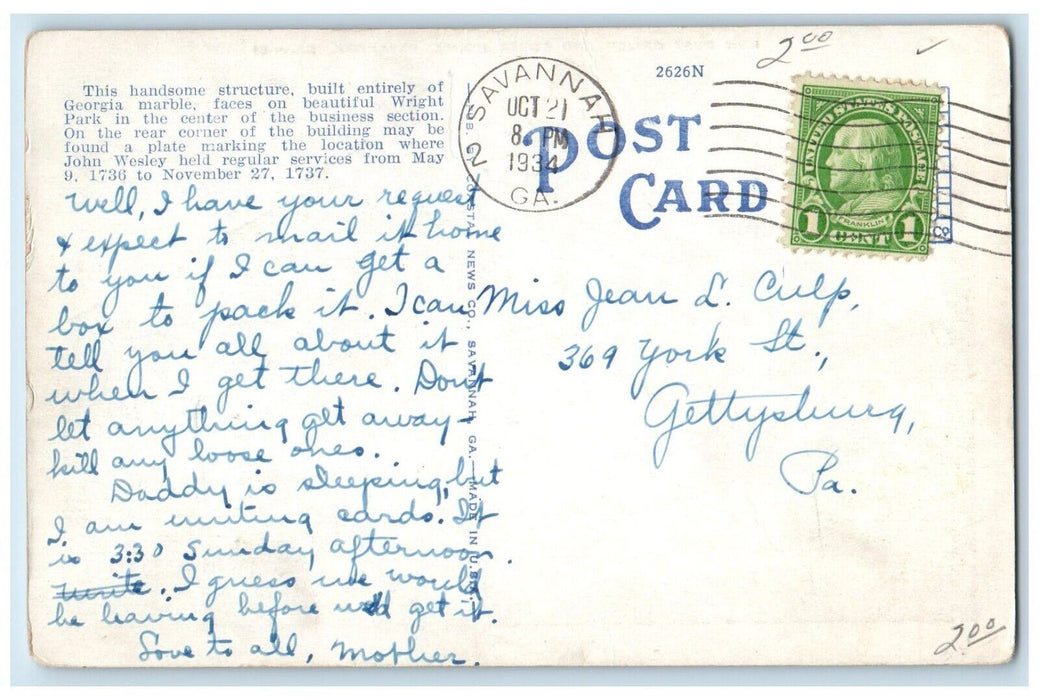 2.00
This handsome structure, built entirely of
Georgia marble, faces on beautiful Wright
Park in the center of the business section.
On the rear corner of the building may be
found a plate marking the location where
John Wesley held regular services from May
9, 1736 to November 27, 1737.
Well, I have your request
& expect to mail it home
to you if I can get a
box to pack it. I can
tell you all about it
when I get there. Don't
let anything get away -
kill any loose ones.
Daddy is sleeping, but
I am writing cards. It
is 3:30 Sunday afternoon.
write. I guess we would
be leaving before we'd get it.
Love to all, Mother.
NEWS CO., SAVANNAH, GA.—MADE IN U.S.A.
SAVANNAH
OCT 21
8 PM
1934
GA.
2
2626N
POST
CARD
UNITED STATES POSTAGE
FRANKLIN
1 CENT 1
Miss Jean L. Culp,
369 York St.,
Gettysburg,
Pa.
2.00